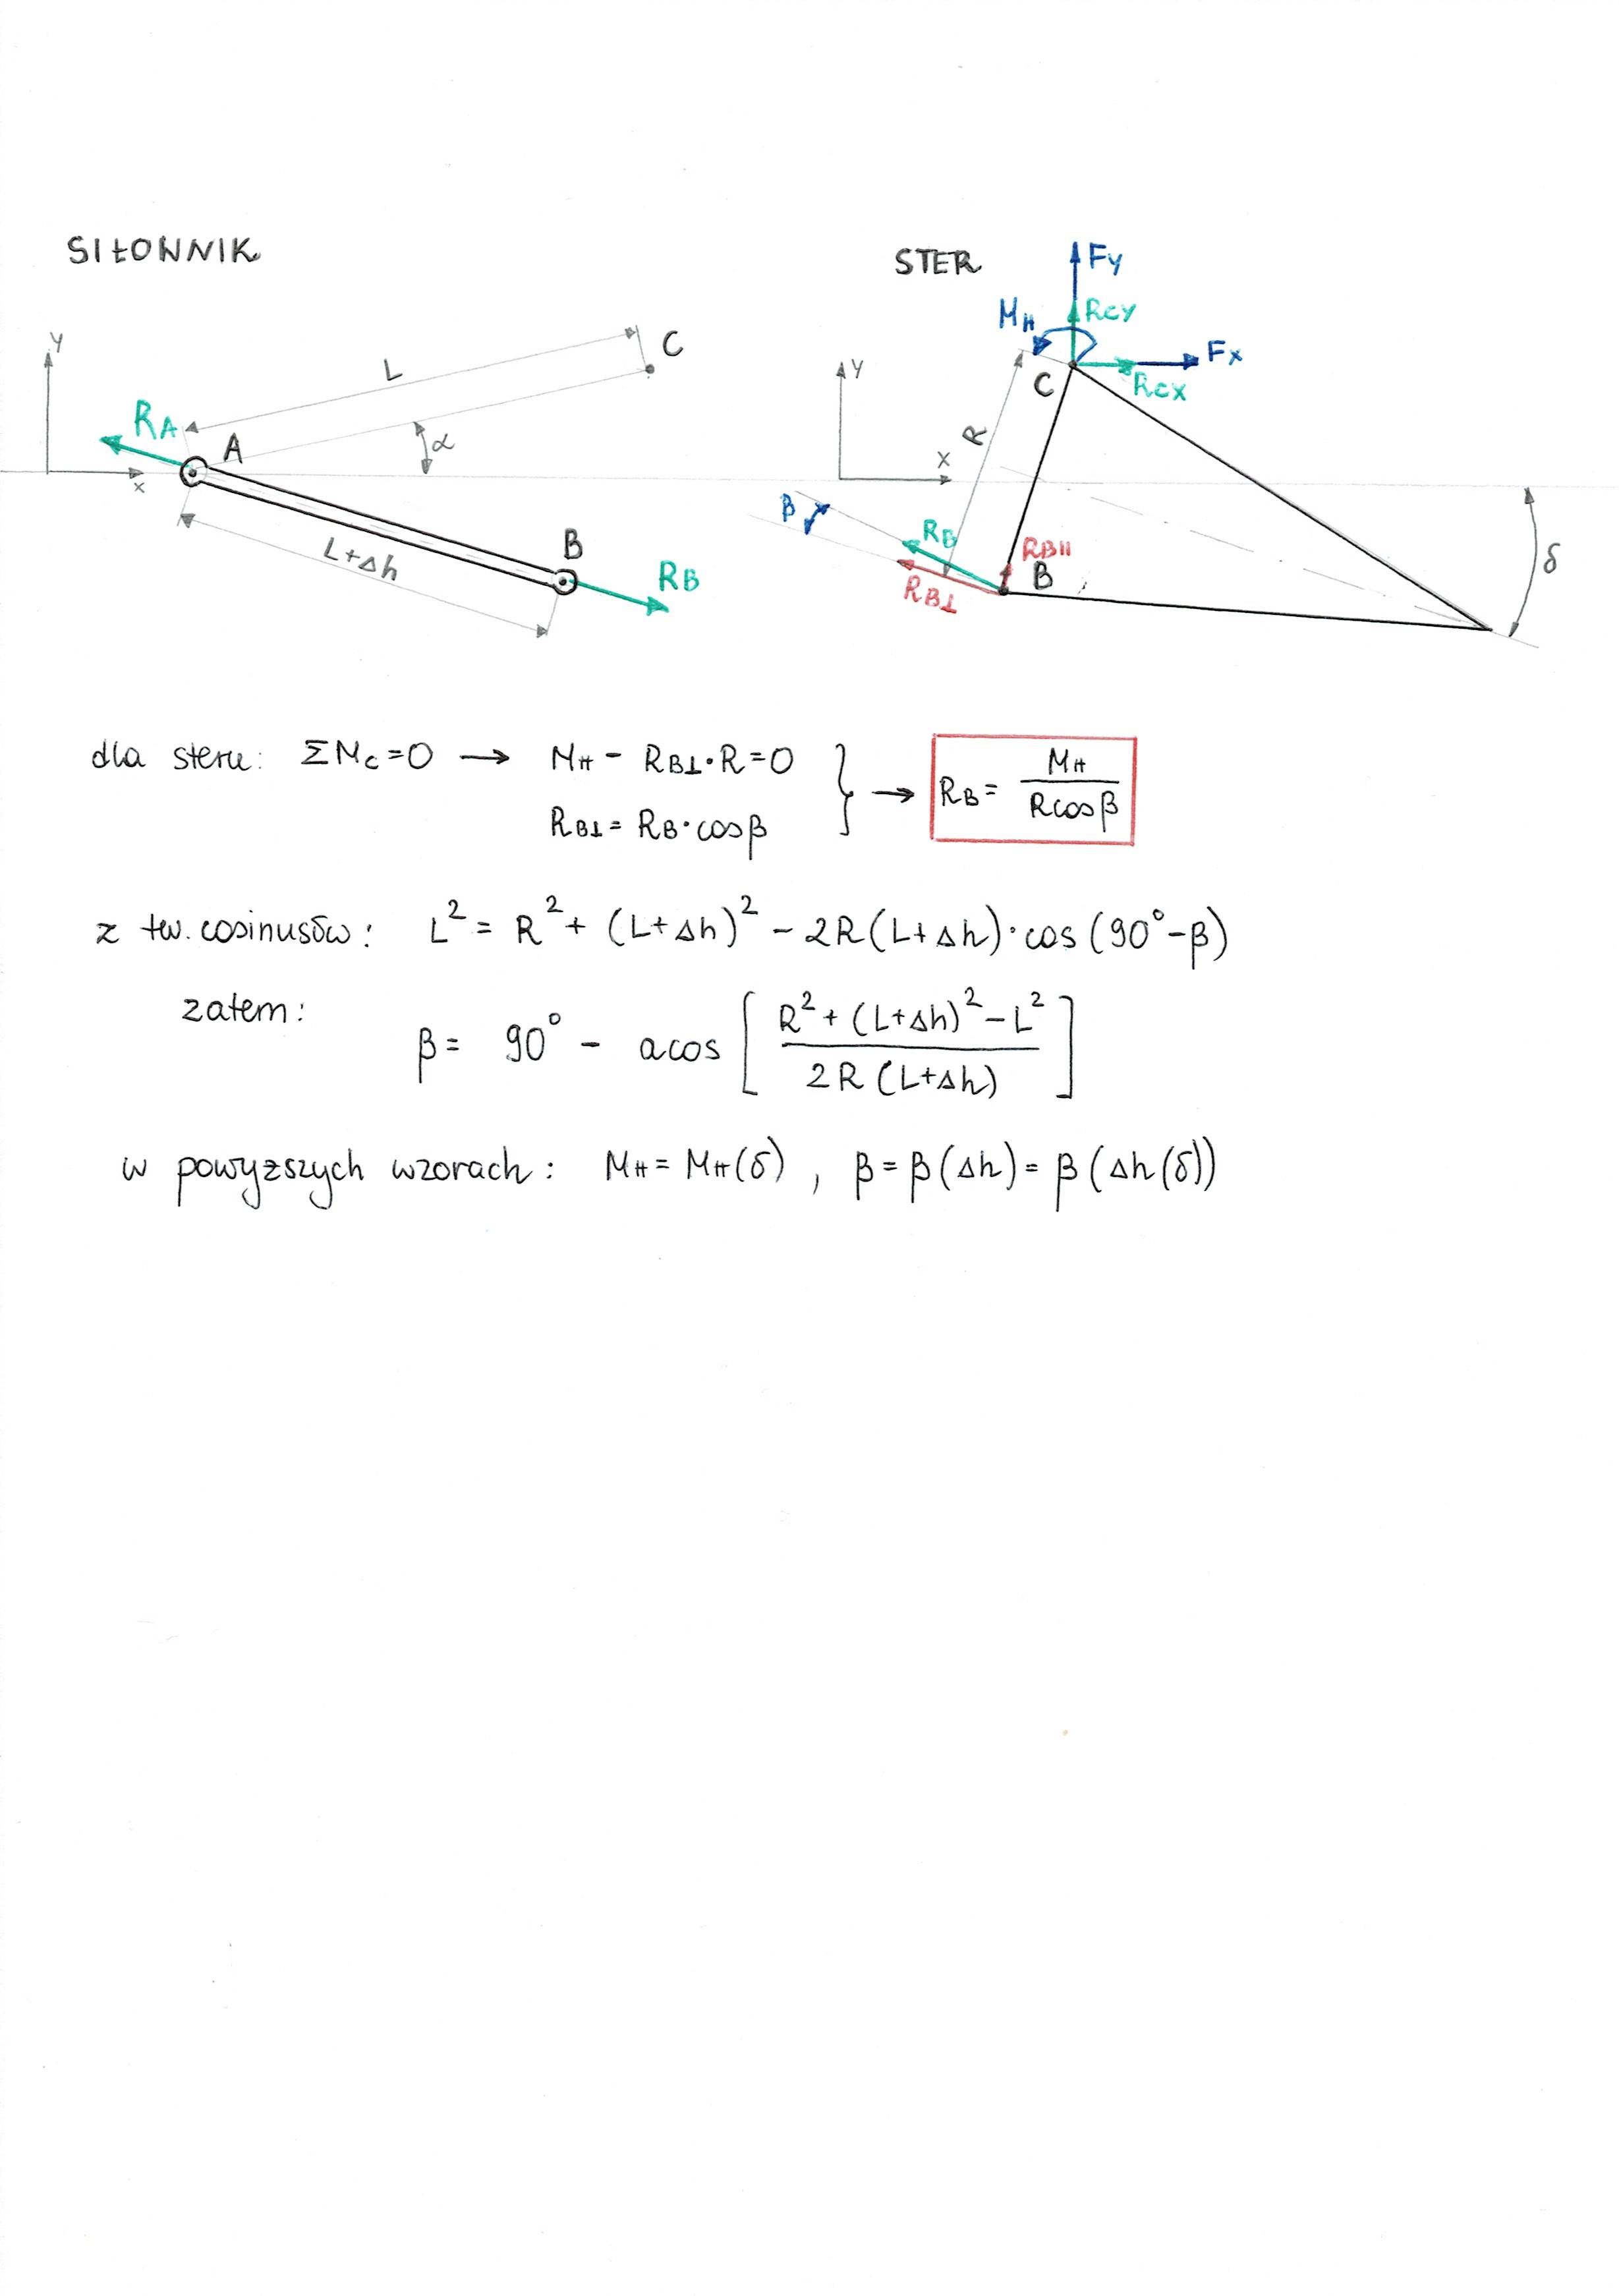 SIŁOWNIK
STER
Y
x
RA
A
L
α
C
L+Δh
B
RB
Fy
RCY
MH
Fx
RCX
C
R
Y
X
β
RB
RB⊥
RB||
B
δ
dla steru: ΣMc=0 → MH - RB⊥·R=0
RB⊥= RB·cosβ
} → RB= MH / Rcosβ
z tw. cosinusów: L² = R² + (L+Δh)² - 2R(L+Δh)·cos(90°-β)
zatem:
β= 90° - acos [ R² + (L+Δh)² - L² / 2R (L+Δh) ]
w powyższych wzorach: MH = MH(δ) , β=β(Δh)= β(Δh(δ))